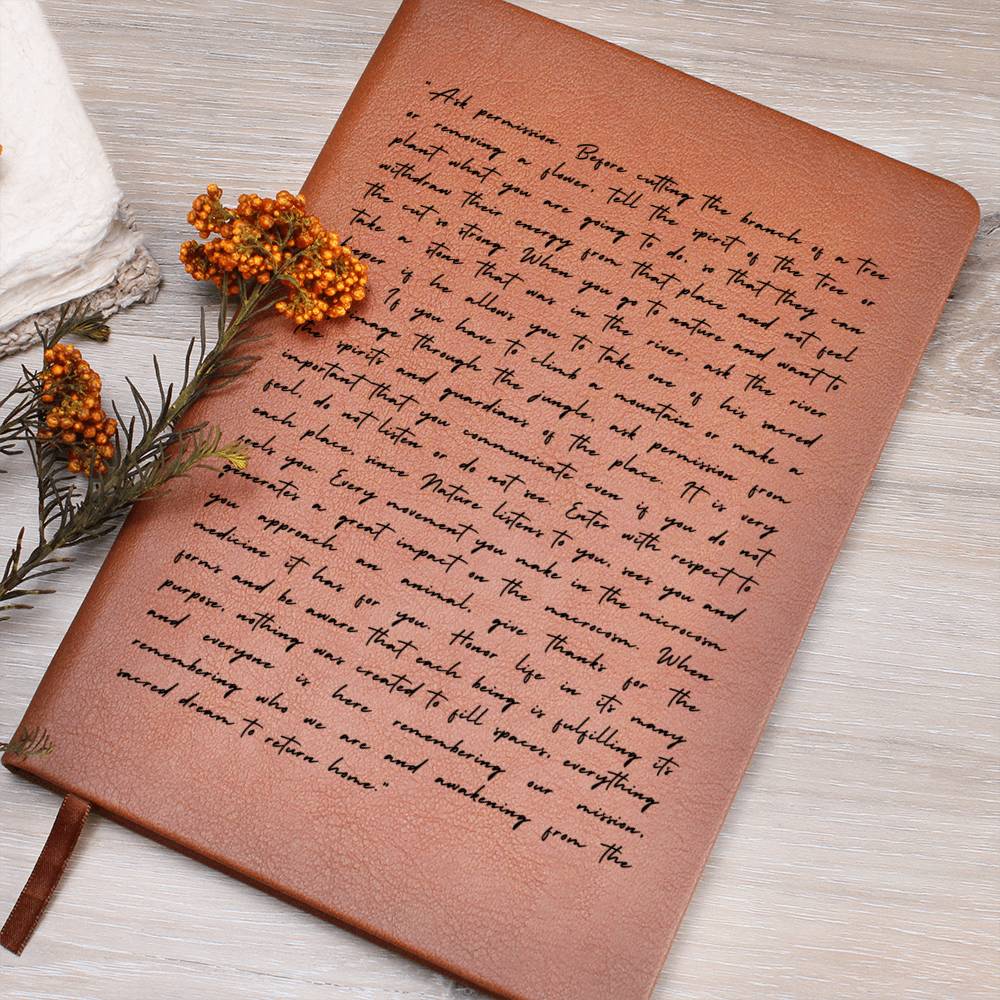 "Ask permission Before cutting the branch of a tree
or removing a flower, tell the spirit of the tree or
plant what you are going to do, so that they can
withdraw their energy from that place and not feel
the cut so strong When you go to nature and want to
take a stone that was in the river, ask the river
if he allows you to take one of his sacred
If you have to climb a mountain or make a
through the jungle, ask permission from
the spirits and guardians of the place. It is very
important that you communicate even if you do not
feel, do not listen or do not see. Enter with respect to
each place, since Nature listens to you, sees you and
feels you. Every movement you make in the microcosm
generates a great impact on the macrocosm. When
you approach an animal, give thanks for the
medicine it has for you. Honor life in its many
forms and be aware that each being is fulfilling its
purpose, nothing was created to fill spaces, everything
and everyone is here remembering our mission,
remembering who we are and awakening from the
sacred dream to return home."